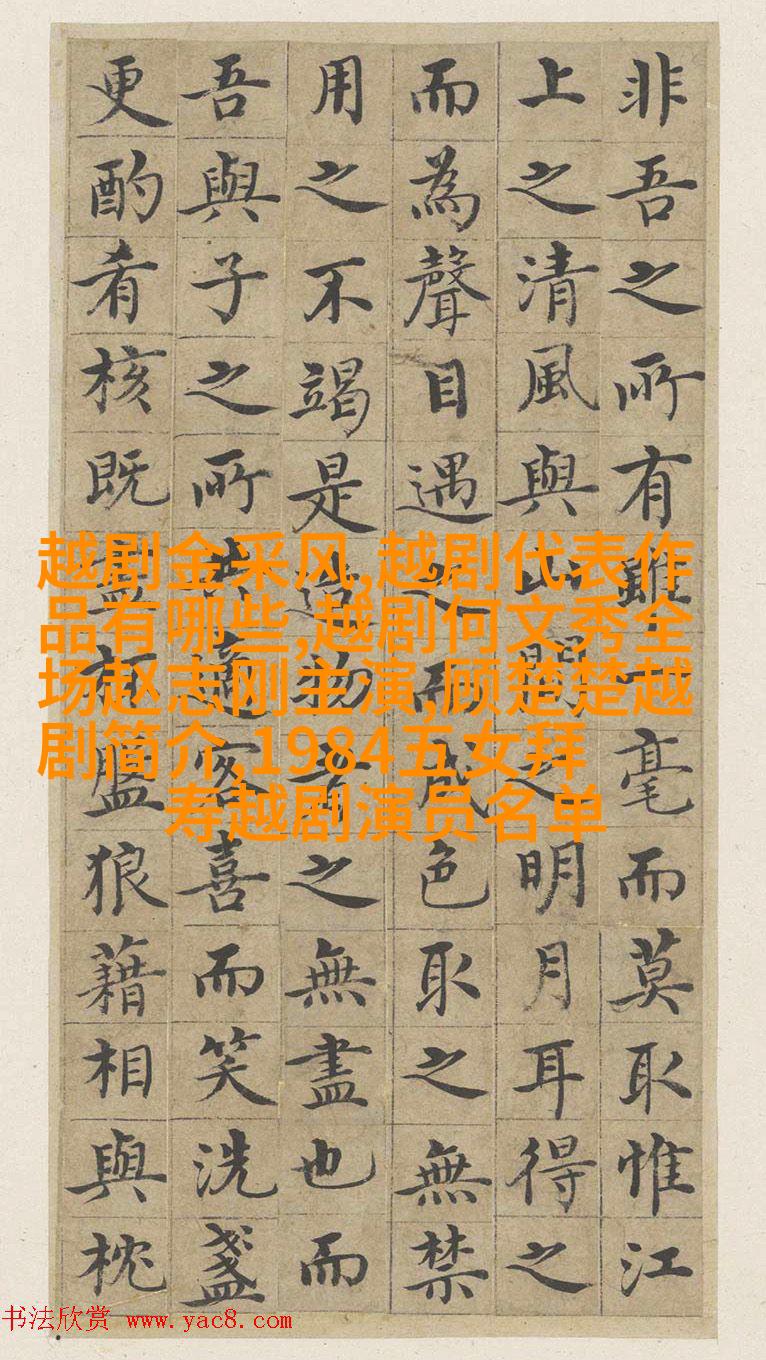 非吾之所有雖一毫而莫取惟江
上之清風與山間之明月耳得之
而為聲目遇之而成色取之無禁
用之不竭是造物者之無盡也而
吾與子之所共適客喜而笑洗盞
更酌肴核既盡杯盤狼藉相與枕
越剧金采风,越剧代表作
品有哪些,越剧何文秀全
场赵志刚主演,顾楚楚越
剧简介,1984五女拜
寿越剧演员名单
书法欣赏 www.yac8.com